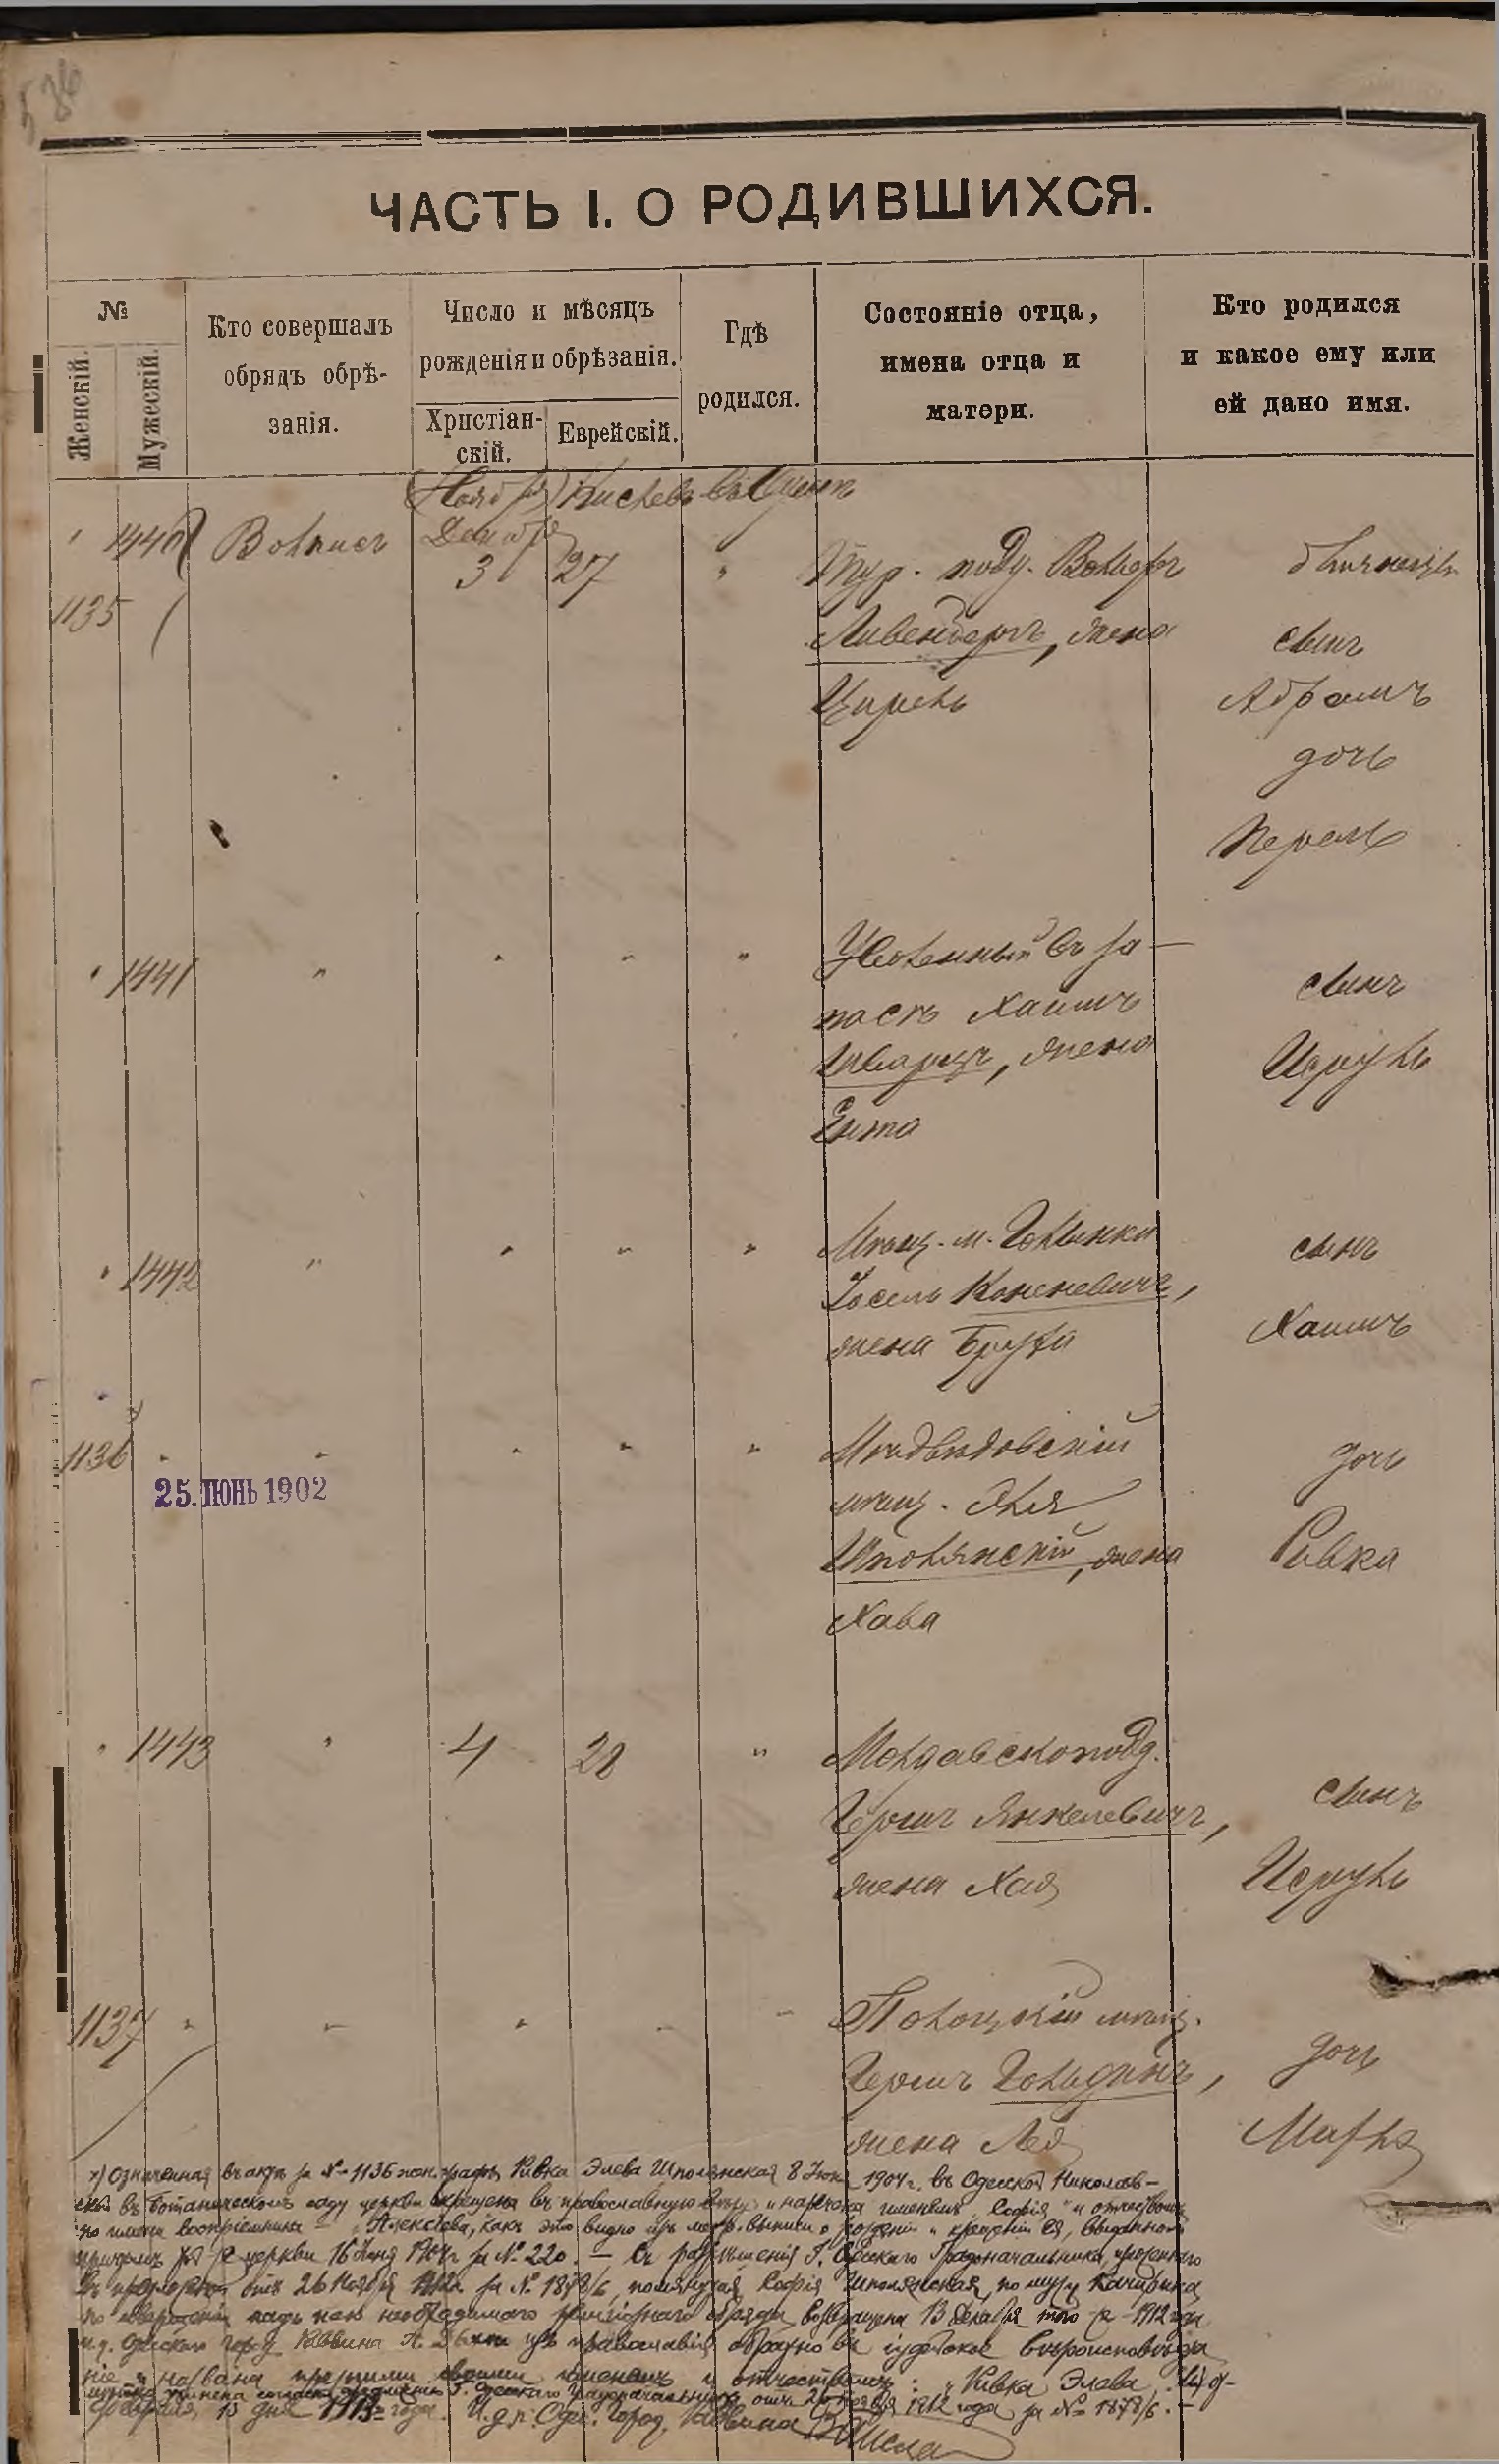 536
ЧАСТЬ I. О РОДИВШИХСЯ.
№
Женскій.
Мужескій.
Кто совершалъ
обрядъ обрѣ-
занія.
Число и мѣсяцъ
рожденія и обрѣзанія.
Христіан-
скій.
Еврейскій.
Гдѣ
родился.
Состояніе отца,
имена отца и
матери.
Кто родился
и какое ему или
ей дано имя.
Кислевъ
1440
1135
3
27
Тур. подд.
жена
Цирель
близнецы
сынъ
Абрамъ
дочь
Перель
1441
Уволенный въ за-
пасъ Хаимъ
Шварцъ, жена
Ента
сынъ
Исруль
1442
Мѣщ. м.
Іосель Каненевичъ,
жена Бруха
сынъ
Хаимъ
1136
25. ІЮНЬ 1902
Мѣдвѣдовскій
мѣщ. Эля
Шполянскій, жена
Хава
дочь
Ривка
1443
4
28
Молдавскоподд.
Гершъ Янкелевичъ,
жена Хая
сынъ
Исруль
1137
Полоцкій мѣщ.
Гершъ Гольдинъ,
жена Лея
дочь
х) Означенная въ актѣ за №-1136 жен. графы Ривка Элева Шполянская 8 Іюня 1904 г. въ Одесской Николаев-
ской въ Ботаническомъ саду церкви крещена въ православную вѣру и наречена именемъ "Софія" и отчествомъ
по имени воспріемника - "Алексѣева, какъ это видно изъ метр. выписи о рожденіи и крещеніи ея, выданной
причтомъ той же церкви 16 Іюня 1904 г за № 220. - Съ разрѣшенія Г. Одесскаго Градоначальника, изложеннаго
въ отъ 26 Ноября 1912 г. за № 1878/6, помянутая Софія Шполянская, по мужу
по совершеніи надъ нею необходимаго религіознаго обряда, возвращена 13 Декабря того же 1912 года
и.д. Одесскаго город. Раввина изъ православія обратно въ іудейское вѣроисповѣда-
ніе и названа прежними своими именемъ и отчествомъ: "Ривка Элева".
учинена согласно Г. Одесскаго Градоначальника отъ 26 Ноября 1912 года за № 1878/6. -
Февраля 13 дня 1913 года. И.д.р. Одес. Город. Раввина